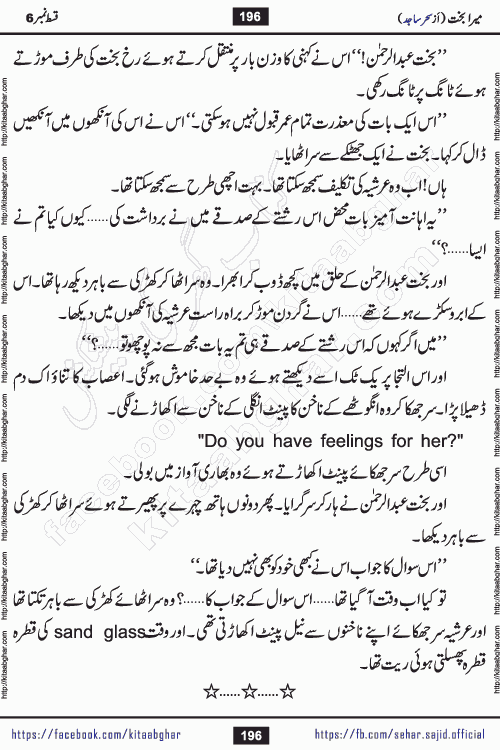 قسط نمبر6
196
میرا بخت (از سحر ساجد)
’’بخت عبدالرحمٰن!‘‘ اس نے کہنی کا وزن بار پر منتقل کرتے ہوئے رخ بخت کی طرف موڑتے
ہوئے ٹانگ پر ٹانگ رکھی۔
’’اس ایک بات کی معذرت تمام عمر قبول نہیں ہوسکتی۔‘‘ اس نے اس کی آنکھوں میں آنکھیں
ڈال کر کہا۔ بخت نے ایک جھٹکے سے سر اٹھایا۔
ہاں! اب وہ عرشیہ کی تکلیف سمجھ سکتا تھا۔ بہت اچھی طرح سے سمجھ سکتا تھا۔
’’یہ اہانت آمیز بات محض اس رشتے کے صدقے میں نے برداشت کی......کیوں کیا تم نے
ایسا......؟‘‘
اور بخت عبدالرحمٰن کے حلق میں کچھ ڈوب کر ابھرا۔ وہ سر اٹھا کر کھڑکی سے باہر دیکھ رہا تھا۔ اس
کے ابرو سکڑے ہوئے تھے......اس نے گردن موڑ کر براہ راست عرشیہ کی آنکھوں میں دیکھا۔
’’میں اگر کہوں کہ اس رشتے کے صدقے ہی تم یہ بات مجھ سے نہ پوچھو تو......؟‘‘
اور اس التجا پر یک ٹک اسے دیکھتے ہوئے وہ بے حد خاموش ہوگئی۔ اعصاب کا تناؤ اک دم
ڈھیلا پڑا۔ سر جھکا کر وہ انگوٹھے کے ناخن کا پینٹ انگلی کے ناخن سے اکھاڑنے لگی۔
"Do you have feelings for her?"
اسی طرح سر جھکائے پینٹ اکھاڑتے ہوئے وہ بھاری آواز میں بولی۔
اور بخت عبدالرحمٰن نے ہار کر سر گرایا۔ پھر دونوں ہاتھ چہرے پر پھیرتے ہوئے سر اٹھا کر کھڑکی
سے باہر دیکھا۔
’’اس سوال کا جواب اس نے کبھی خود کو بھی نہیں دیا تھا۔‘‘
تو کیا اب وقت آگیا تھا......اس سوال کے جواب کا......؟ وہ سر اٹھائے کھڑکی سے باہر تکتا تھا
اور عرشیہ سر جھکائے اپنے ناخنوں سے نیل پینٹ اکھاڑتی تھی۔ اور وقت sand glass کی قطرہ
قطرہ پھسلتی ہوئی ریت تھا۔
☆......☆......☆
https://facebook.com/kitaabghar
196
https://fb.com/sehar.sajid.official
http://kitaabghar.com
facebook.com/kitaabghar
kitaabghar.com